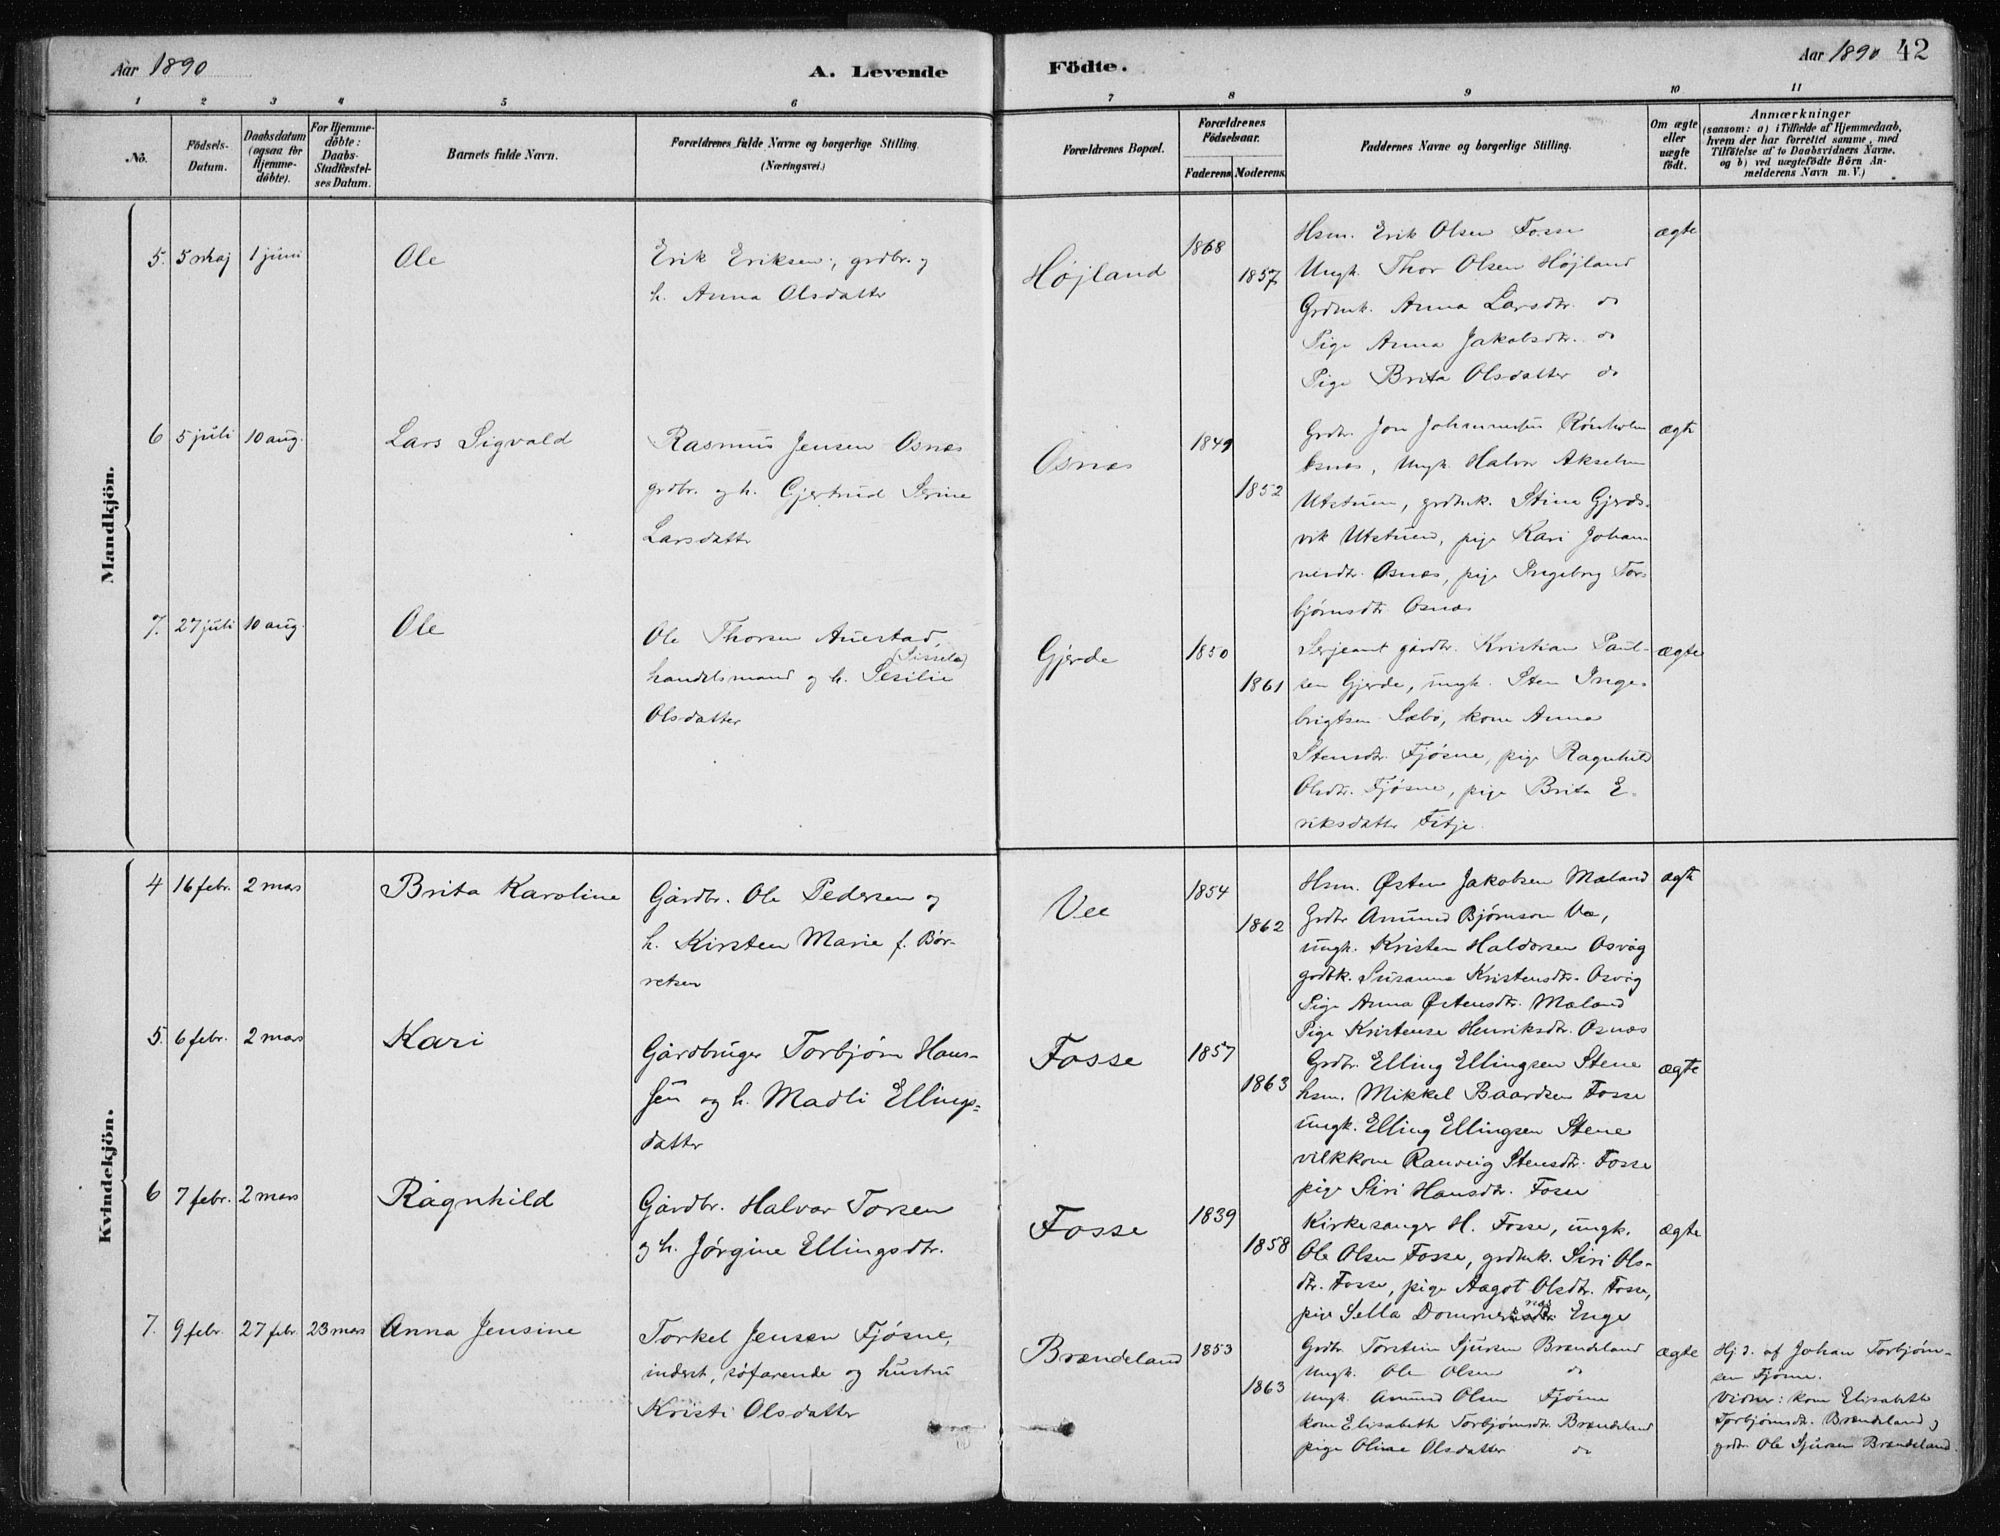 Aar 1890
A. Levende
Födte.
Aar 1890
42
1 2 3 4 5 6 7 8 9 10 11
No.
Födsels-
Datum.
Daabsdatum
(ogsaa for
Hjemme-
döbte).
For Hjemme-
döbte:
Daabs-
Stadfæstel-
ses Datum.
Barnets fulde Navn.
Forældrenes fulde Navne og borgerlige Stilling.
(Næringsvei.)
Forældrenes Bopæl.
Forældrenes
Födselsaar.
Faderens Moderens.
Faddernes Navne og borgerlige Stilling.
Om ægte
eller
uægte
födt.
Anmærkninger
(saasom: a) i Tilfælde af Hjemmedaab,
hvem der har forrettet samme, med
Tilföielse af to Daabsvidners Navne,
og b) ved uægtefödte Börn An-
melderens Navn m. V.)
Mandkjön.
5. 5 maj 1 juni
Ole
Erik Eriksen, grdbr. og
h. Anna Olsdatter
Højland
1868
1857
Hsm. Erik Olsen Fosse
Ungk. Thor Olsen Højland
Grdmk. Anna Larsdtr. do
Pige Anna Jakobsdtr. do
Pige Brita Olsdatter do
ægte
6 5 juli 10 aug.
Lars Sigvald
Rasmus Jensen Osnæs
grdbr. og h. Gjertrud Serine
Larsdatter
Osnæs
1849
1852
Grdbr. Jon Johannesen Rönholm
Osnæs, Ungk. Halvor Akselsen
Utstuen, grdmk. Stina Gjerds-
vik Utstuen, pige Kari Johan-
nesdtr. Osnæs, pige Ingeborg Tor-
bjørnsdtr. Osnæs
ægte
7. 27 juli 10 aug.
Ole
Ole Thorsen Auestad,
(Sissela)
handelsmand og h. Sesilie
Olsdatter
Gjerde
1850
1861
Serjeant gårdbr. Kristian Paul-
sen Gjerde, ungk. Sten Inge-
brigtsen Sæbö, kone Anna
Stensdtr. Fjøsne, pige Ragnhild
Olsdtr. Fjøsne, pige Brita E-
riksdatter Fitje.
ægte
Kvindekjön.
4 16 febr. 2 mars
Brita Karoline
Gårdbr. Ole Pedersen og
h. Kirsten Marie f. Bör-
retsen
Vee
1854
1862
Hsm. Østen Jakobsen Mæland
Grdbr Amund Bjørnson Væ,
ungk. Kristen Haldorsen Osvåg
grdbk. Susanna Kristensdtr. Osvåg
Pige Anna Østensdtr. Mæland
Pige Kristense Henriksdtr. Osnæs
ægte
5. 6 febr. 2 mars
Kari
Gårdbruger Torbjörn Hans-
sen og h. Madli Ellings-
datter
Fosse
1857
1863
Grdbr. Elling Ellingsen Stene
hsm. Mikkel Baardsen Fosse
ungk. Elling Ellingsen Stene
vilkkone Ranveig Stensdtr. Fosse
pige Siri Hansdtr. Fosse
ægte
6 7 febr. 2 mars
Ragnhild
Gårdbr. Halvor Torsen
og h. Jørgine Ellingsdtr.
Fosse
1839
1858
Kirkesanger H. Fosse, ungk.
Ole Olsen Fosse, grdmk. Siri Ols-
dtr. Fosse, pige Aagot Olsdtr. Fosse,
pige Sella Enge
ægte
7. 9 febr. 27 febr. 23 mars
Anna Jensine
Torkel Jensen Fjøsne,
inderst, søfarende og hustru
Kristi Olsdatter
Brændeland
1853
1863
Grdbr. Torstein Sjursen Brændeland
Ungk. Ole Olsen do
Ungk. Amund Olsen Fjøsne
kone Elisabeth Torbjørnsdtr. Brændeland
pige Oline Olsdatter do
ægte
Hj.d. af Johan Torbjørn-
sen Fjøsne.
Vidner: kone Elisabeth
Torbjørnsdtr. Brændeland og
grdbr. Ole Sjursen Brændeland.